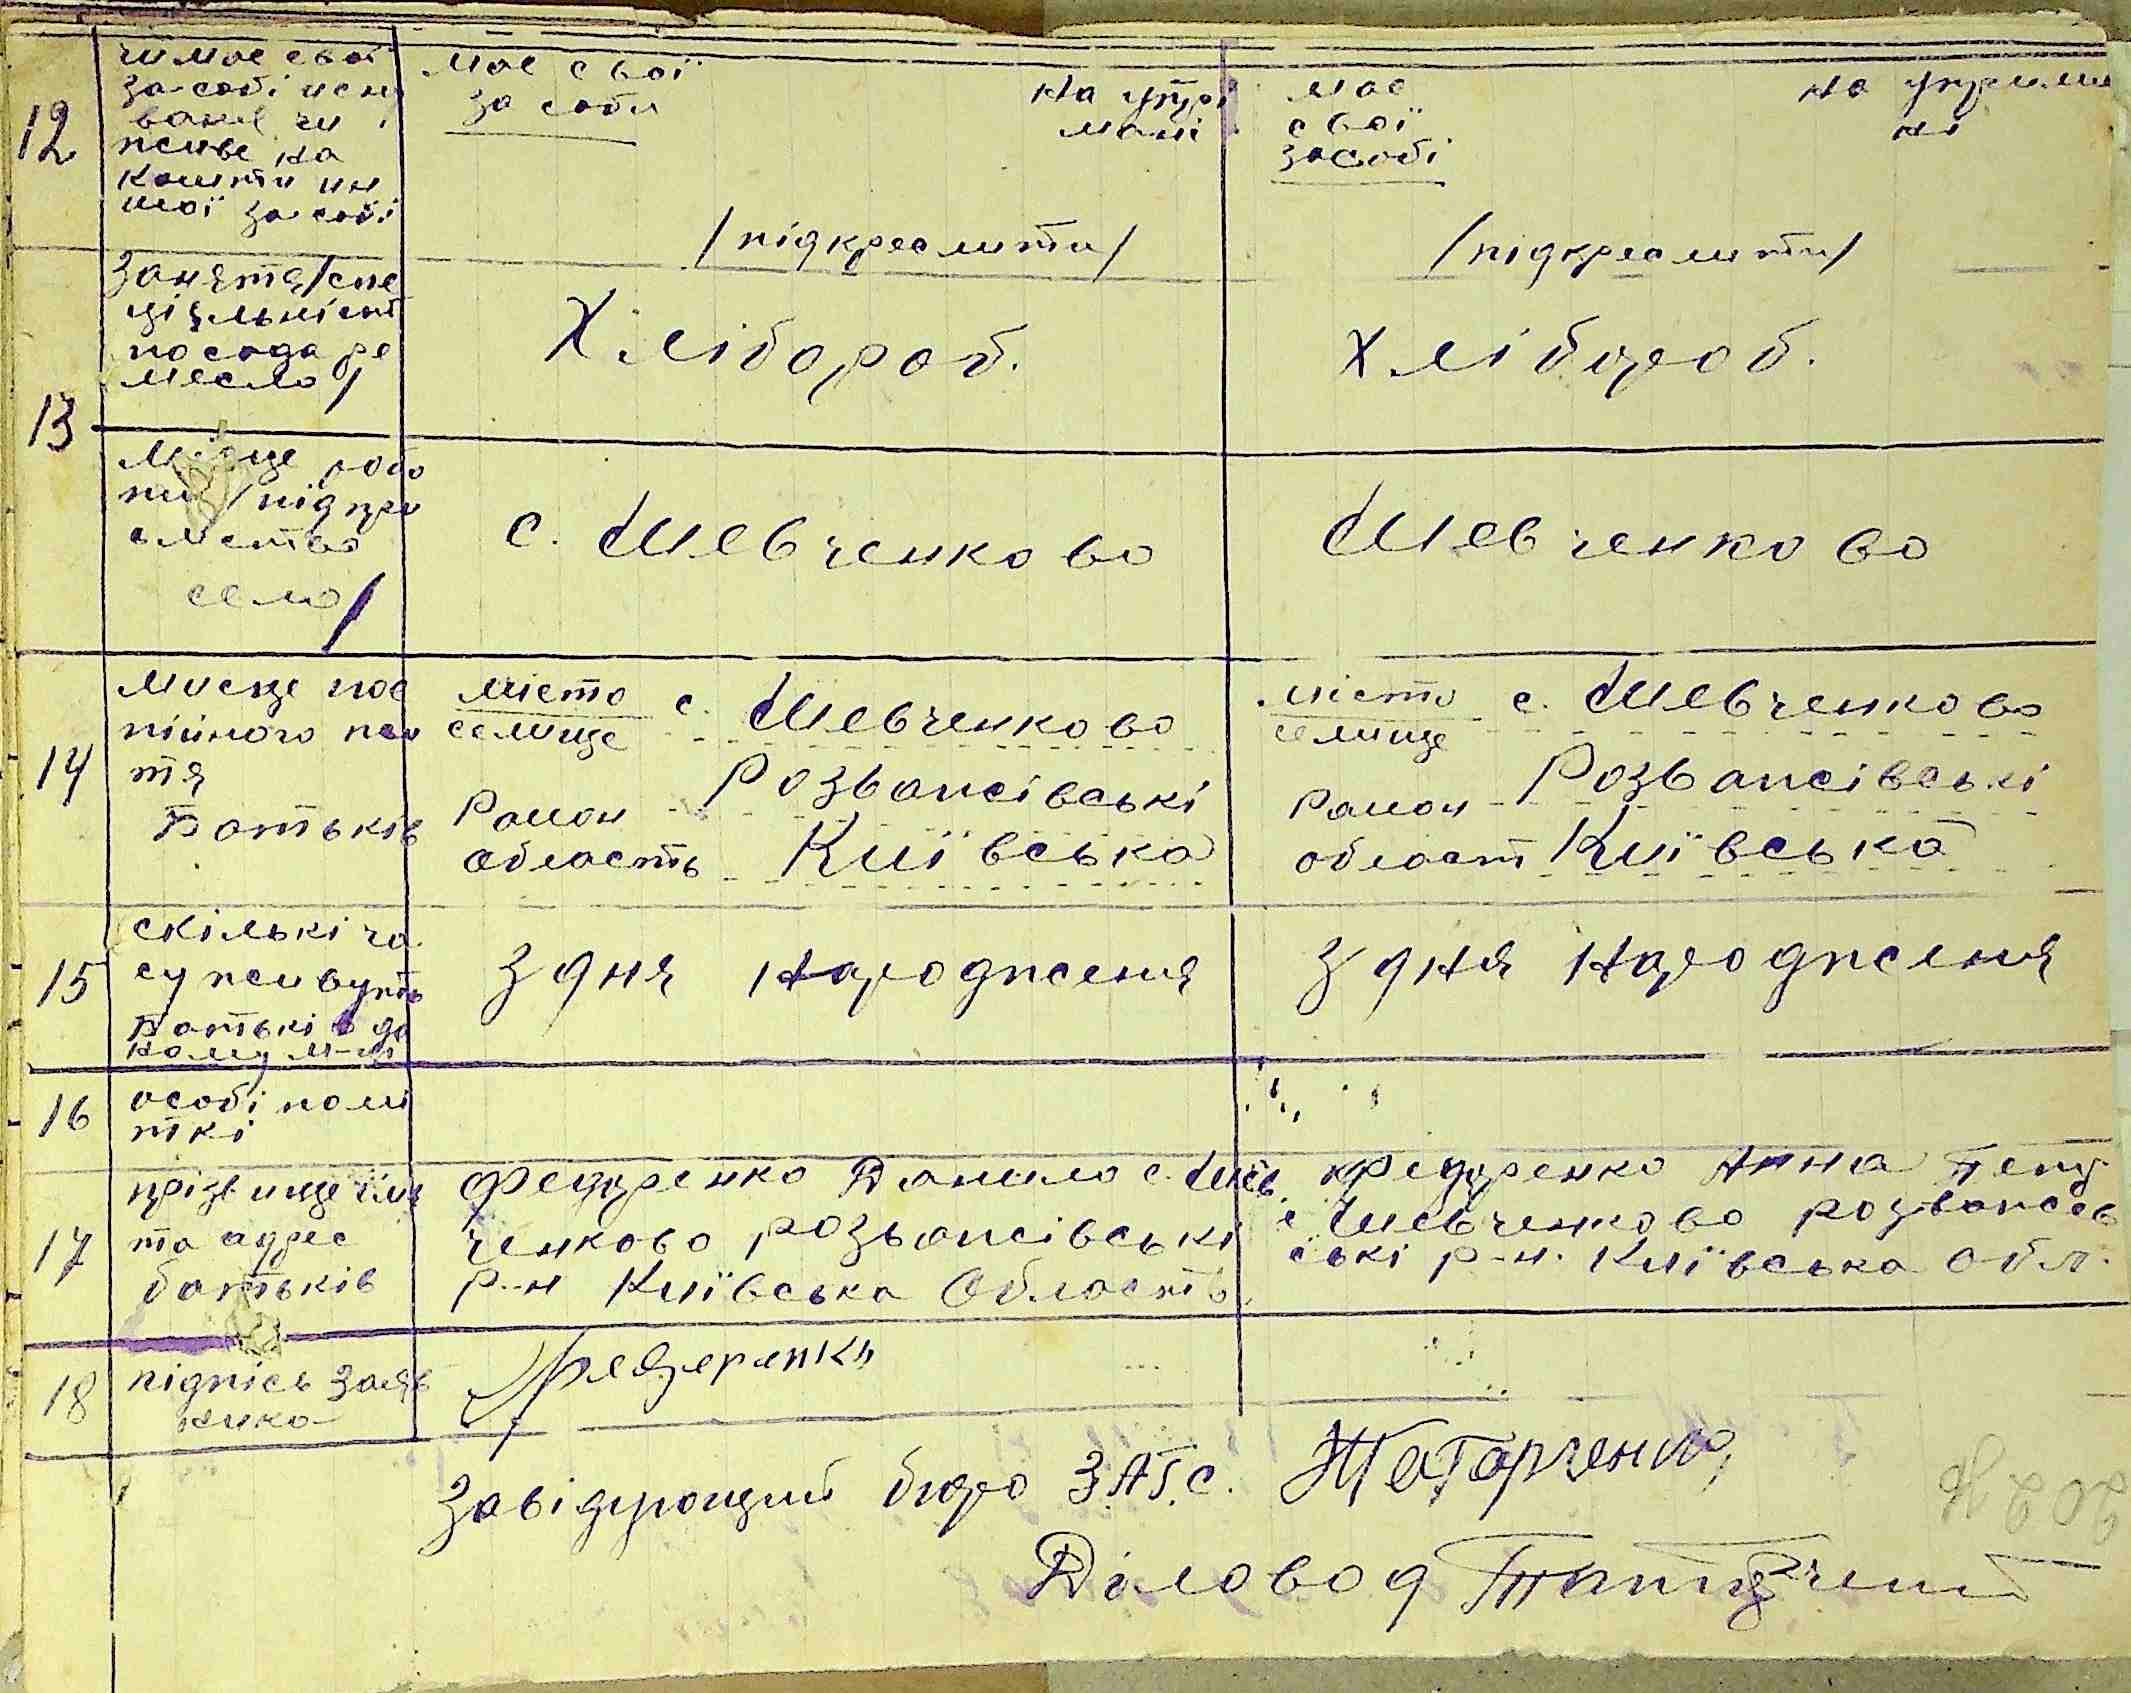 12
чи має свої
засобі існу
вання чи
псиве на
кошти ин
шої засобі
має свої
засоби
на утри
мані
/підкреслити/
має
свої
засобі
на утрима
ні
/підкреслити/
13
Заняття/спе
ціяльніст
посада ре
месло/
Хлібороб.
Хлібороб.
Місце робо
ти/підпри
ємство
село/
с. Шевченково
Шевченково
14
Мисце пос
тійного псу
тя
Батьків
місто
селище
с. Шевченково
Район Розважівські
область Київська
місто
селище
с. Шевченково
Район Розважівські
област Київська
15
скількі ча
су псивуть
Батькі в да
ному м-ці
З дня народження
З дня народження
16
особі помі
ткі
17
прізвище імя
та адрес
батьків
Федоренко Данило с. Шев
ченково розважівські
р-н Київська Область.
Федоренко Анна Пет.
с Шевченково розважів
ські р-н. Київська Обл.
18
підпісь заяв
ника
Федоренко
Завідующий бюро ЗАГС.
Діловод